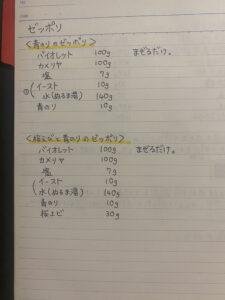 ゼッポリ
<青のりのゼッポリ>
バイオレット 100g まぜるだけ。
カメリヤ 100g
塩 7g
① イースト 10g
水(ぬるま湯) 140g
青のり 10g
<桜エビと青のりのゼッポリ>
バイオレット 100g まぜるだけ。
カメリヤ 100g
塩 7g
イースト 10g
水(ぬるま湯) 140g
青のり 10g
桜エビ 30g